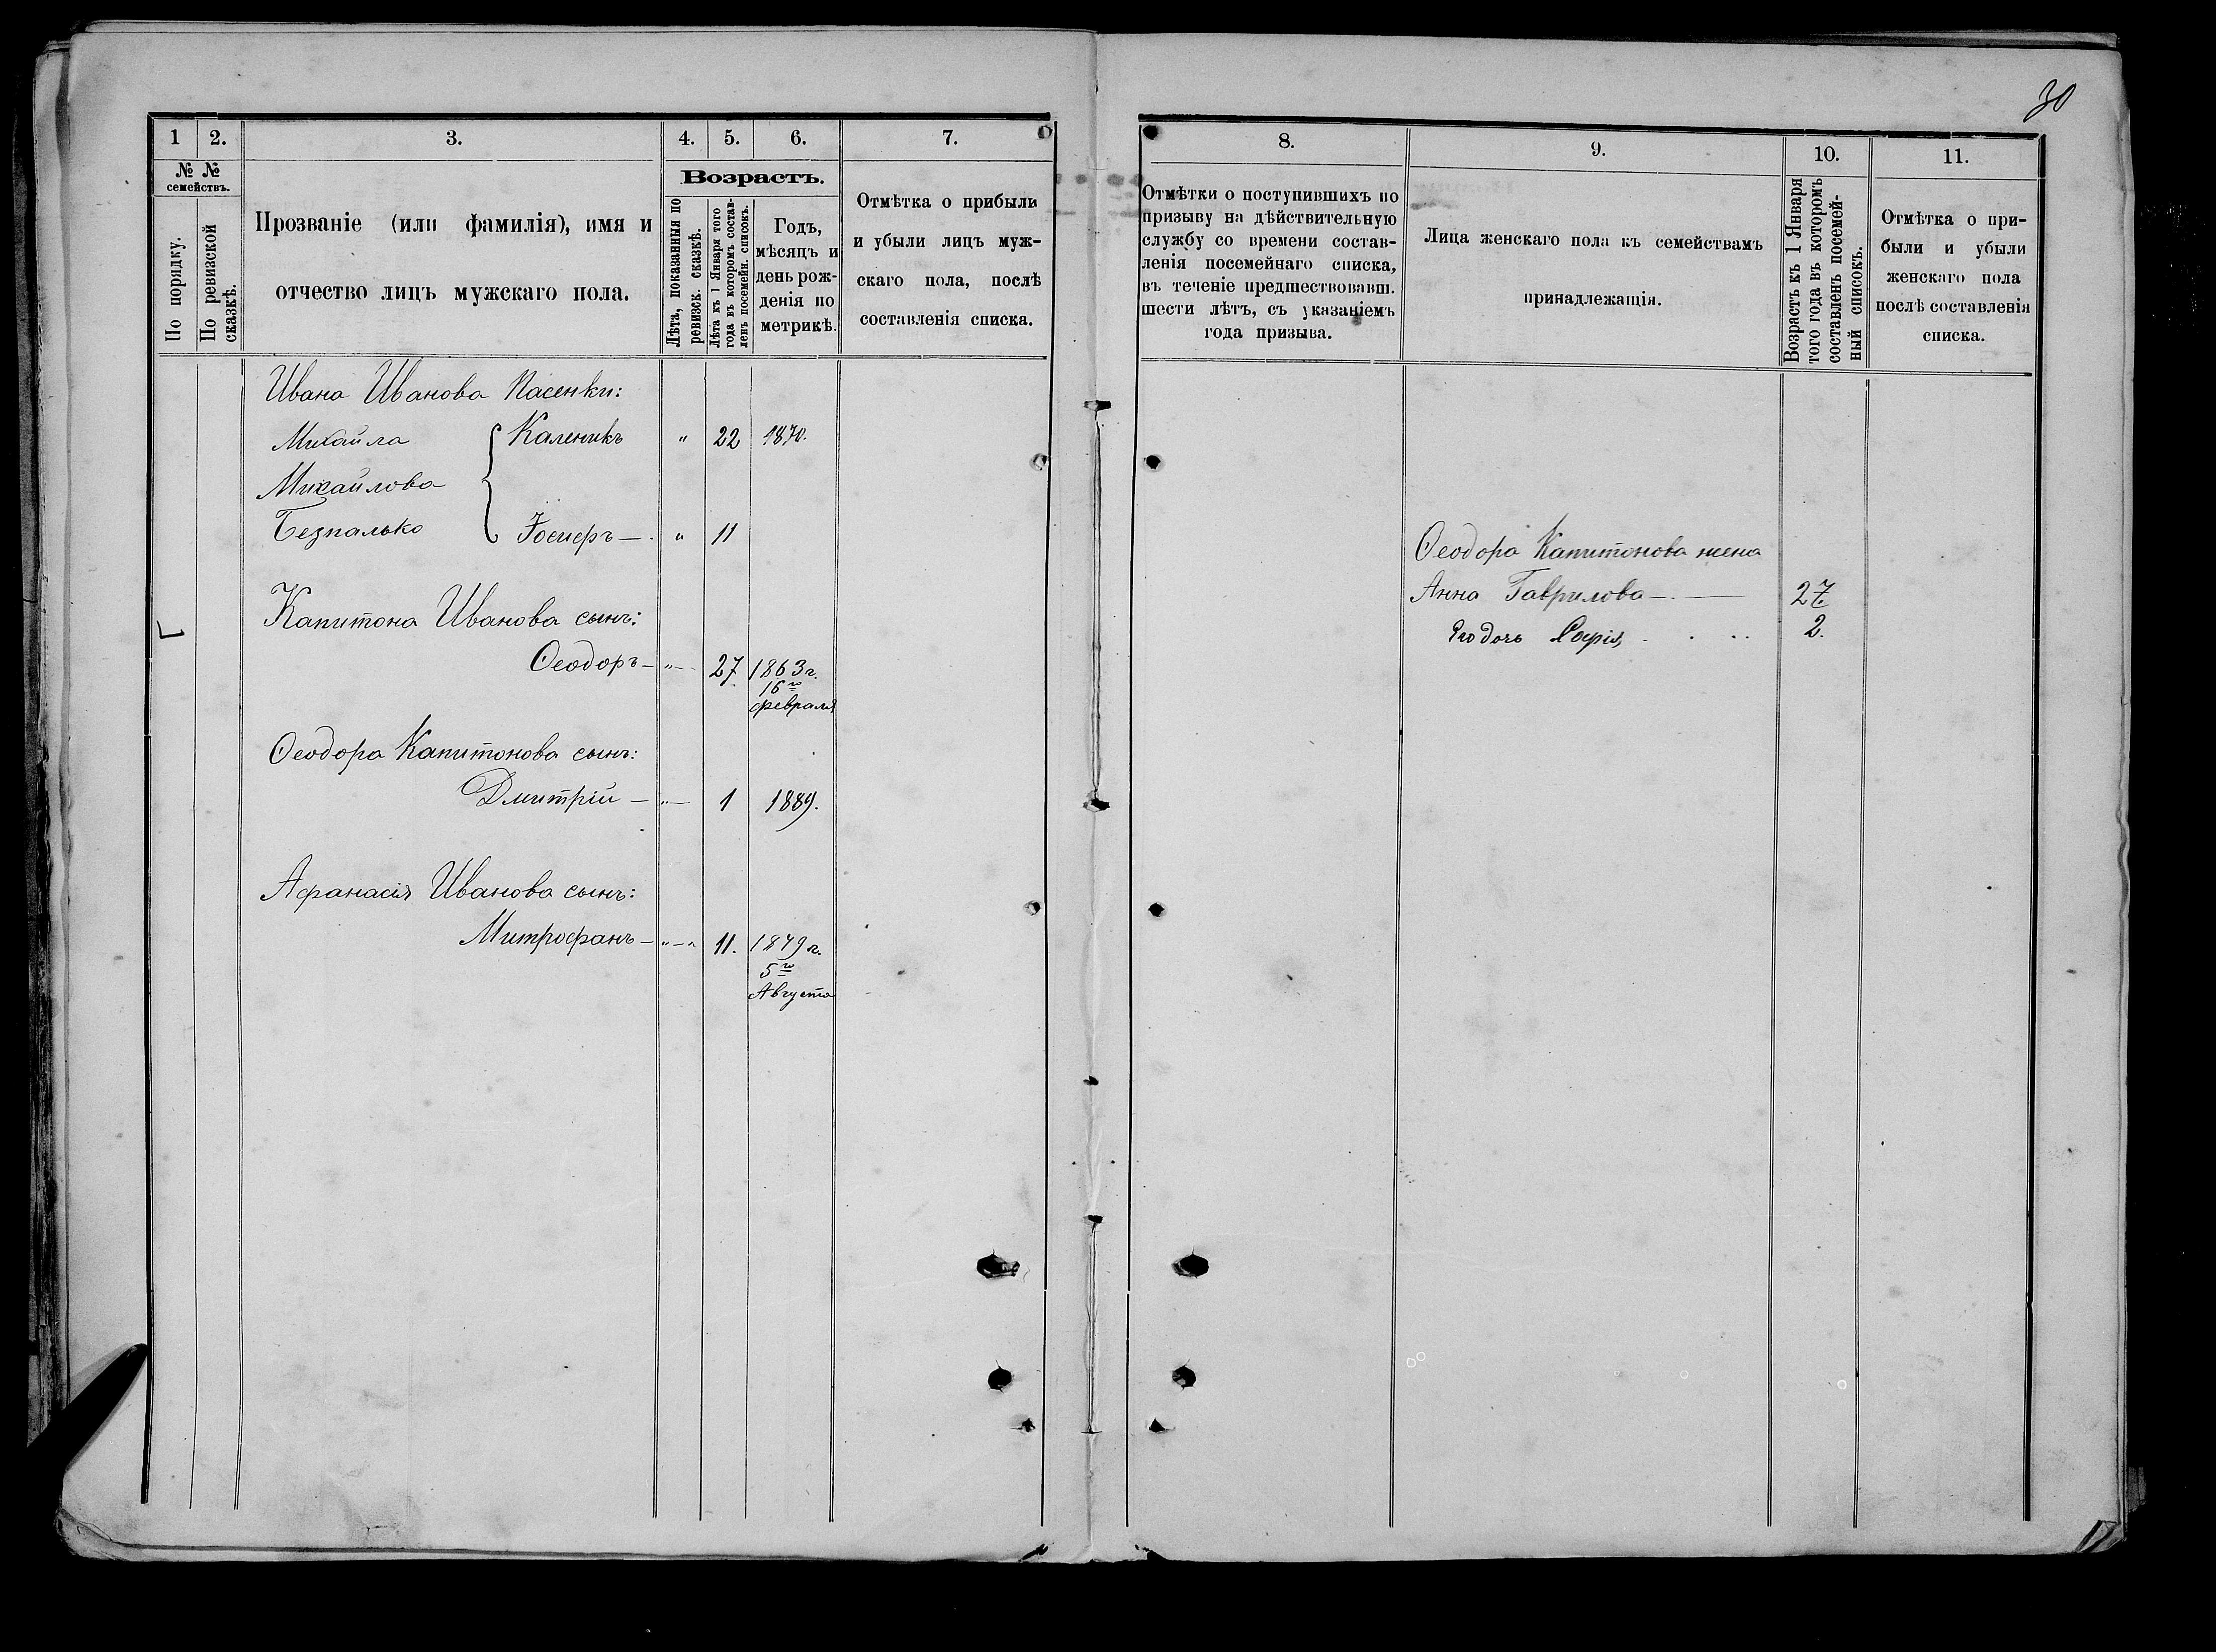 30
1 2. 3. 4. 5. 6. 7.
№ № семействъ.
По порядку.
По ревизской сказкѣ.
Прозваніе (или фамилія), имя и
отчество лицъ мужскаго пола.
Возрастъ.
Лѣта, показанныя по
ревизск. сказкѣ.
Лѣта къ 1 Января того
года въ которомъ состав-
ленъ посемейн. списокъ.
Годъ,
мѣсяцъ и
день рож-
денія по
метрикѣ.
Отмѣтка о прибыли
и убыли лицъ муж-
скаго пола, послѣ
составленія списка.
Ивана Иванова Пасенки:
Михайла { Каленикъ " 22 1870.
Михайлова
Безпалько Іосифъ — " 11
Капитона Иванова сынъ:
Ѳеодоръ — " — 27 1863 г.
16го
февраля
Ѳеодора Капитонова сынъ:
Дмитрій — " — 1 1889.
Афанасія Иванова сынъ:
Митрофанъ — " — " 11. 1879 г.
5го
Августа
8. 9. 10. 11.
Отмѣтки о поступившихъ по
призыву на дѣйствительную
службу со времени состав-
ленія посемейнаго списка,
въ теченіе предшествовавш.
шести лѣтъ, съ указаніемъ
года призыва.
Лица женскаго пола къ семействамъ
принадлежащія.
Возрастъ къ 1 Января
того года въ которомъ
составленъ посемей-
ный списокъ.
Отмѣтка о при-
были и убыли
женскаго пола
послѣ составленія
списка.
Ѳеодора Капитонова жена
Анна Гаврилова — . — 27
Его дочь Софія, . . .. 2.